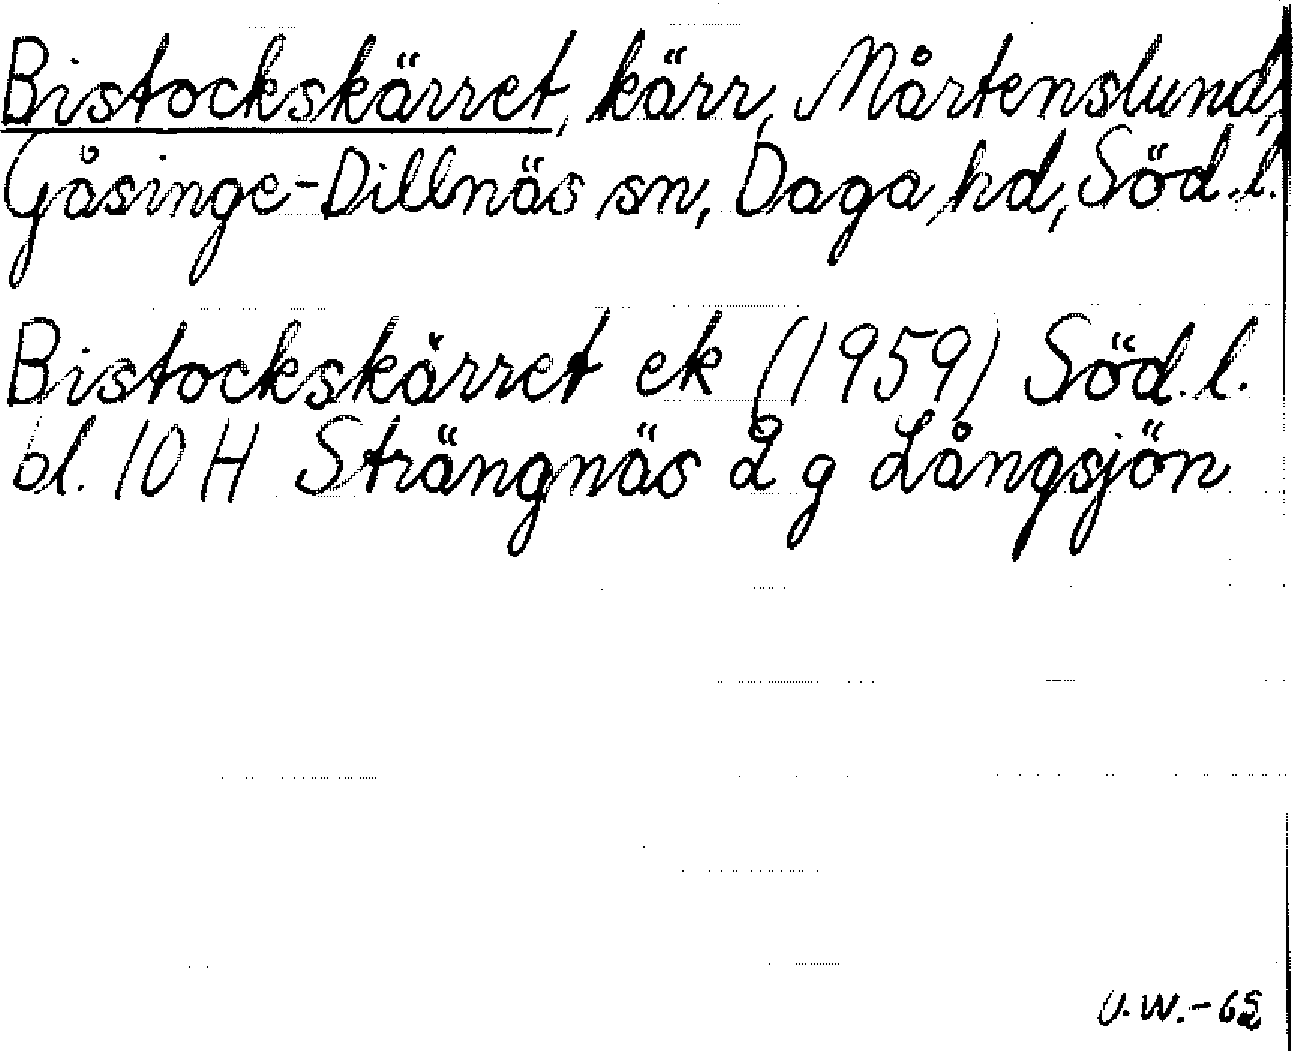 Bistockskärret, kärr, Mårtenslund,
Gåsinge-Dillnäs sn, Daga hd, Söd.l.
Bistockskärret ek (1959) Söd.l.
bl. 10 H Strängnäs 2 g Långsjön
U.W.-62